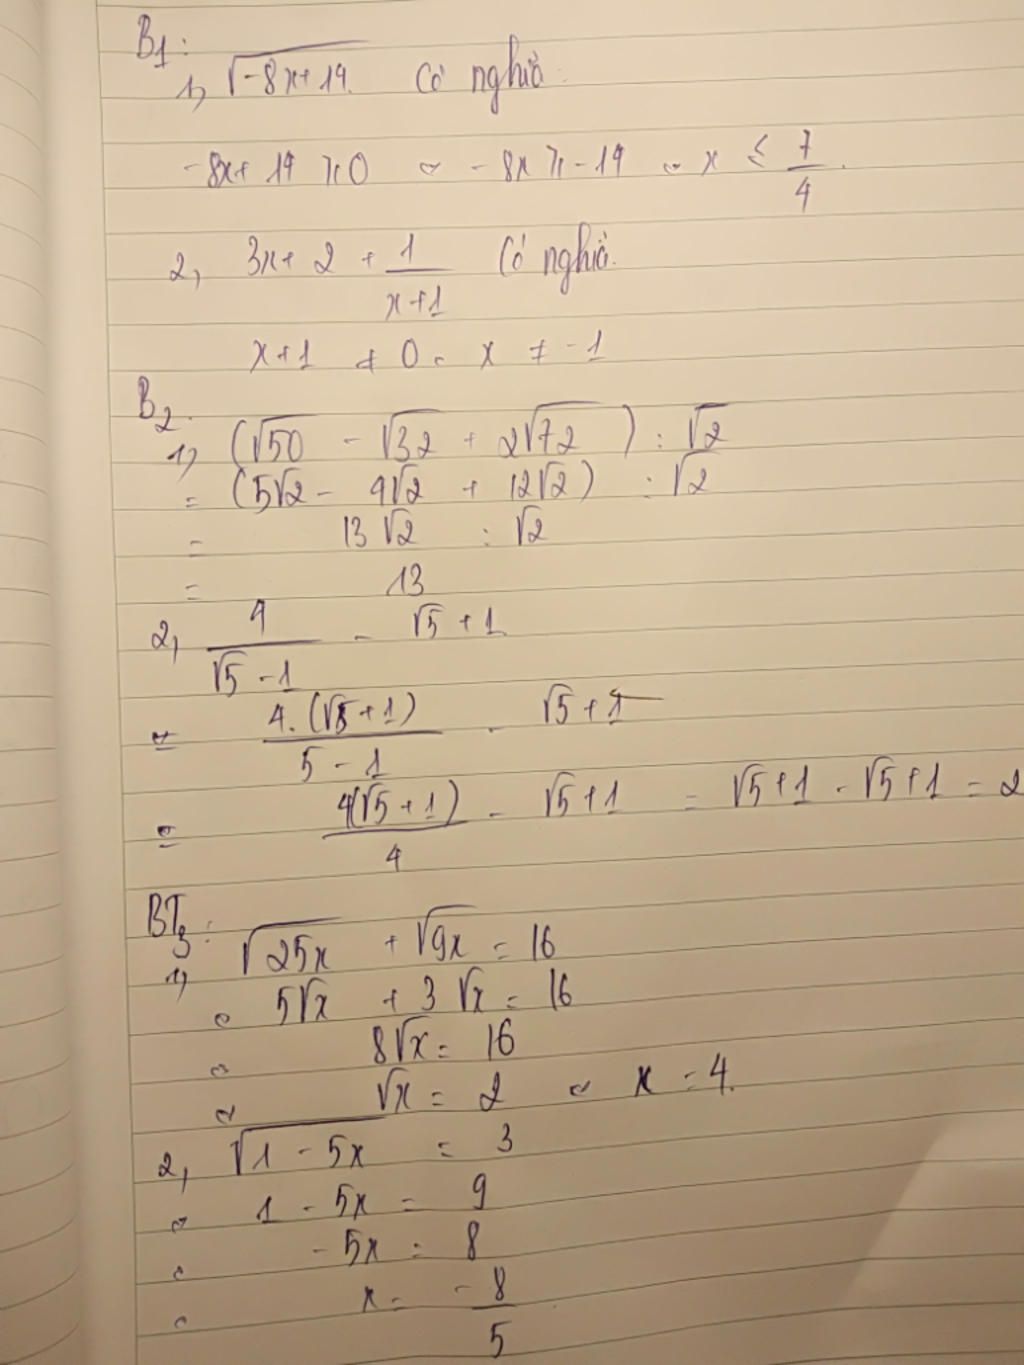 B1:
1) √-8x+14 Có nghiã
-8x+14 ≥ 0 ⇔ -8x ≥ -14 ⇔ x ≤ 7/4.
2, 3x+2 + 1/(x+1) Có nghiã.
x+1 ≠ 0 ⇔ x ≠ -1
B2.
1) (√50 - √32 + 2√72) : √2
= (5√2 - 4√2 + 12√2) : √2
= 13√2 : √2
= 13
2, 4/(√5 - 1) - √5 + 1
= 4.(√5+1)/(5 - 1) - √5 + 1
= 4(√5+1)/4 - √5+1 = √5+1 - √5+1 = 2
BT3:
1) √25x + √9x = 16
⇔ 5√x + 3√x = 16
⇔ 8√x = 16
⇔ √x = 2 ⇔ x = 4.
2, √1 - 5x = 3
⇔ 1 - 5x = 9
⇔ -5x = 8
⇔ x = -8/5